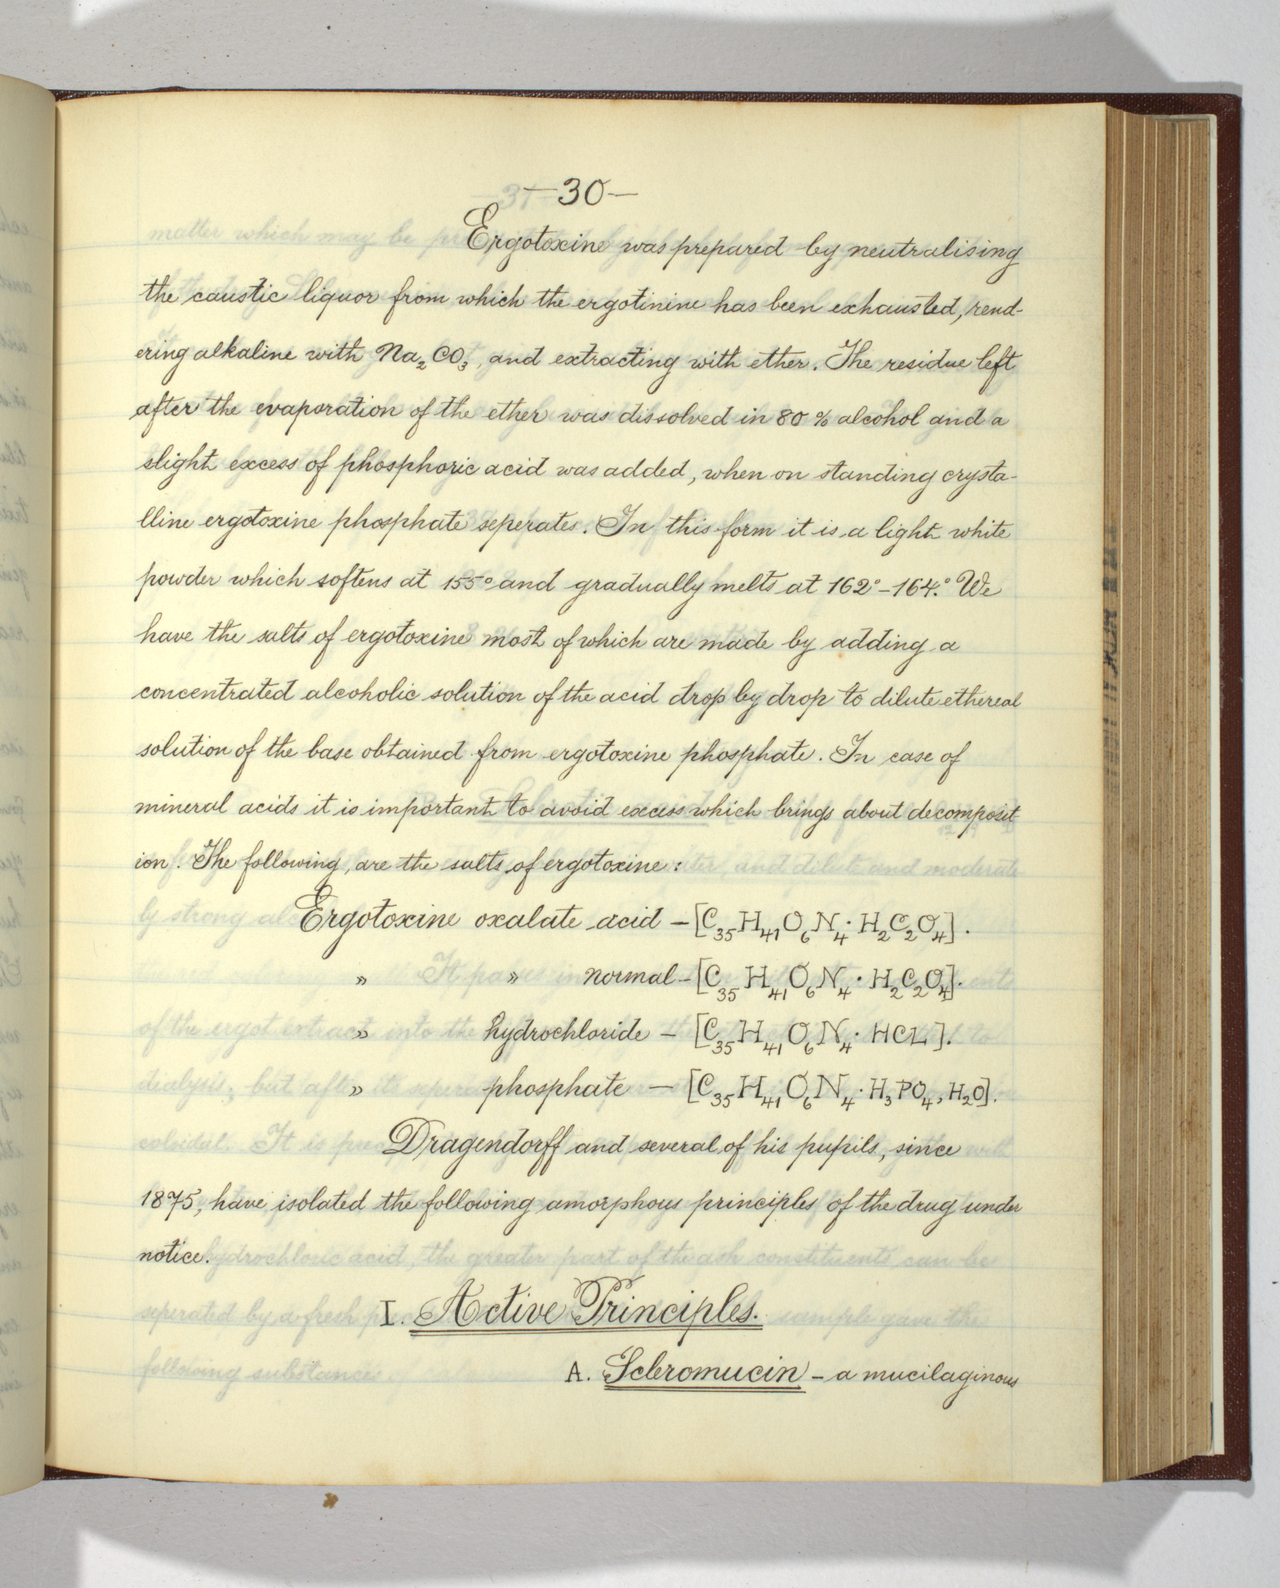 —30—
Ergotoxine was prepared by neutralising
the caustic liquor from which the ergotinine has been exhausted, rend-
ering alkaline with Na₂CO₃, and extracting with ether. The residue left
after the evaporation of the ether was dissolved in 80 % alcohol and a
slight excess of phosphoric acid was added, when on standing crysta-
lline ergotoxine phosphate seperates. In this form it is a light white
powder which softens at 155° and gradually melts at 162°-164.° We
have the salts of ergotoxine most of which are made by adding a
concentrated alcoholic solution of the acid drop by drop to dilute ethereal
solution of the base obtained from ergotoxine phosphate. In case of
mineral acids it is important to avoid excess which brings about decomposit
ion. The following, are the salts of ergotoxine:
Ergotoxine oxalate acid – [C₃₅H₄₁O₆N₄·H₂C₂O₄].
" " normal – [C₃₅H₄₁O₆N₄·H₂C₂O₄].
" hydrochloride – [C₃₅H₄₁O₆N₄·HCL].
" phosphate – [C₃₅H₄₁O₆N₄·H₃PO₄,H₂O].
Dragendorff and several of his pupils, since
1875, have isolated the following amorphous principles of the drug under
notice.
I. Active Principles.
A. Scleromucin – a mucilaginous